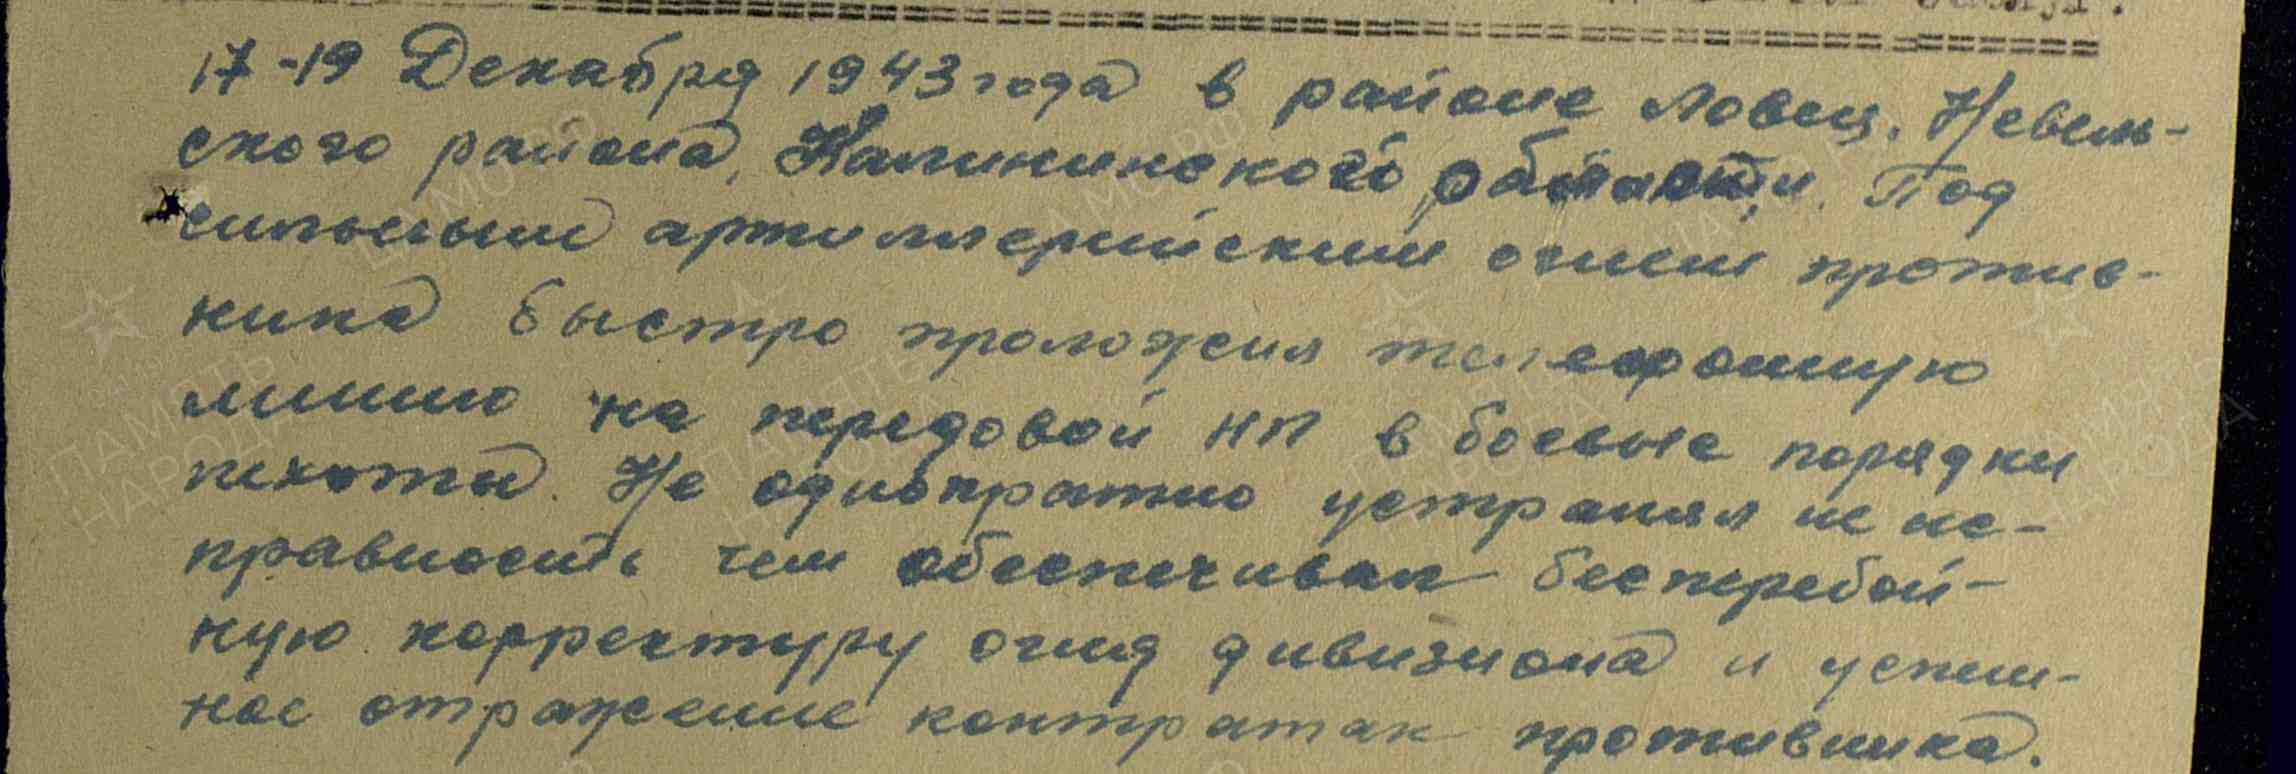 17-19 Декабря 1943 года в районе Ловец, Невель-
ского района, Калининской области. Под
сильным артиллерийским огнем против-
ника быстро проложил телефонную
линию на передовой НП в боевые порядки
пехоты. Не однократно устранял не ис-
правность чем обеспечивал бесперебой-
ную корректуру огня дивизиона и успеш-
ное отражение контратак противника.
ПАМЯТЬ
НАРОДА
ПАМЯТЬ
НАРОДА
ПАМЯТЬ
НАРОДА
ПАМЯТЬ
НАРОДА